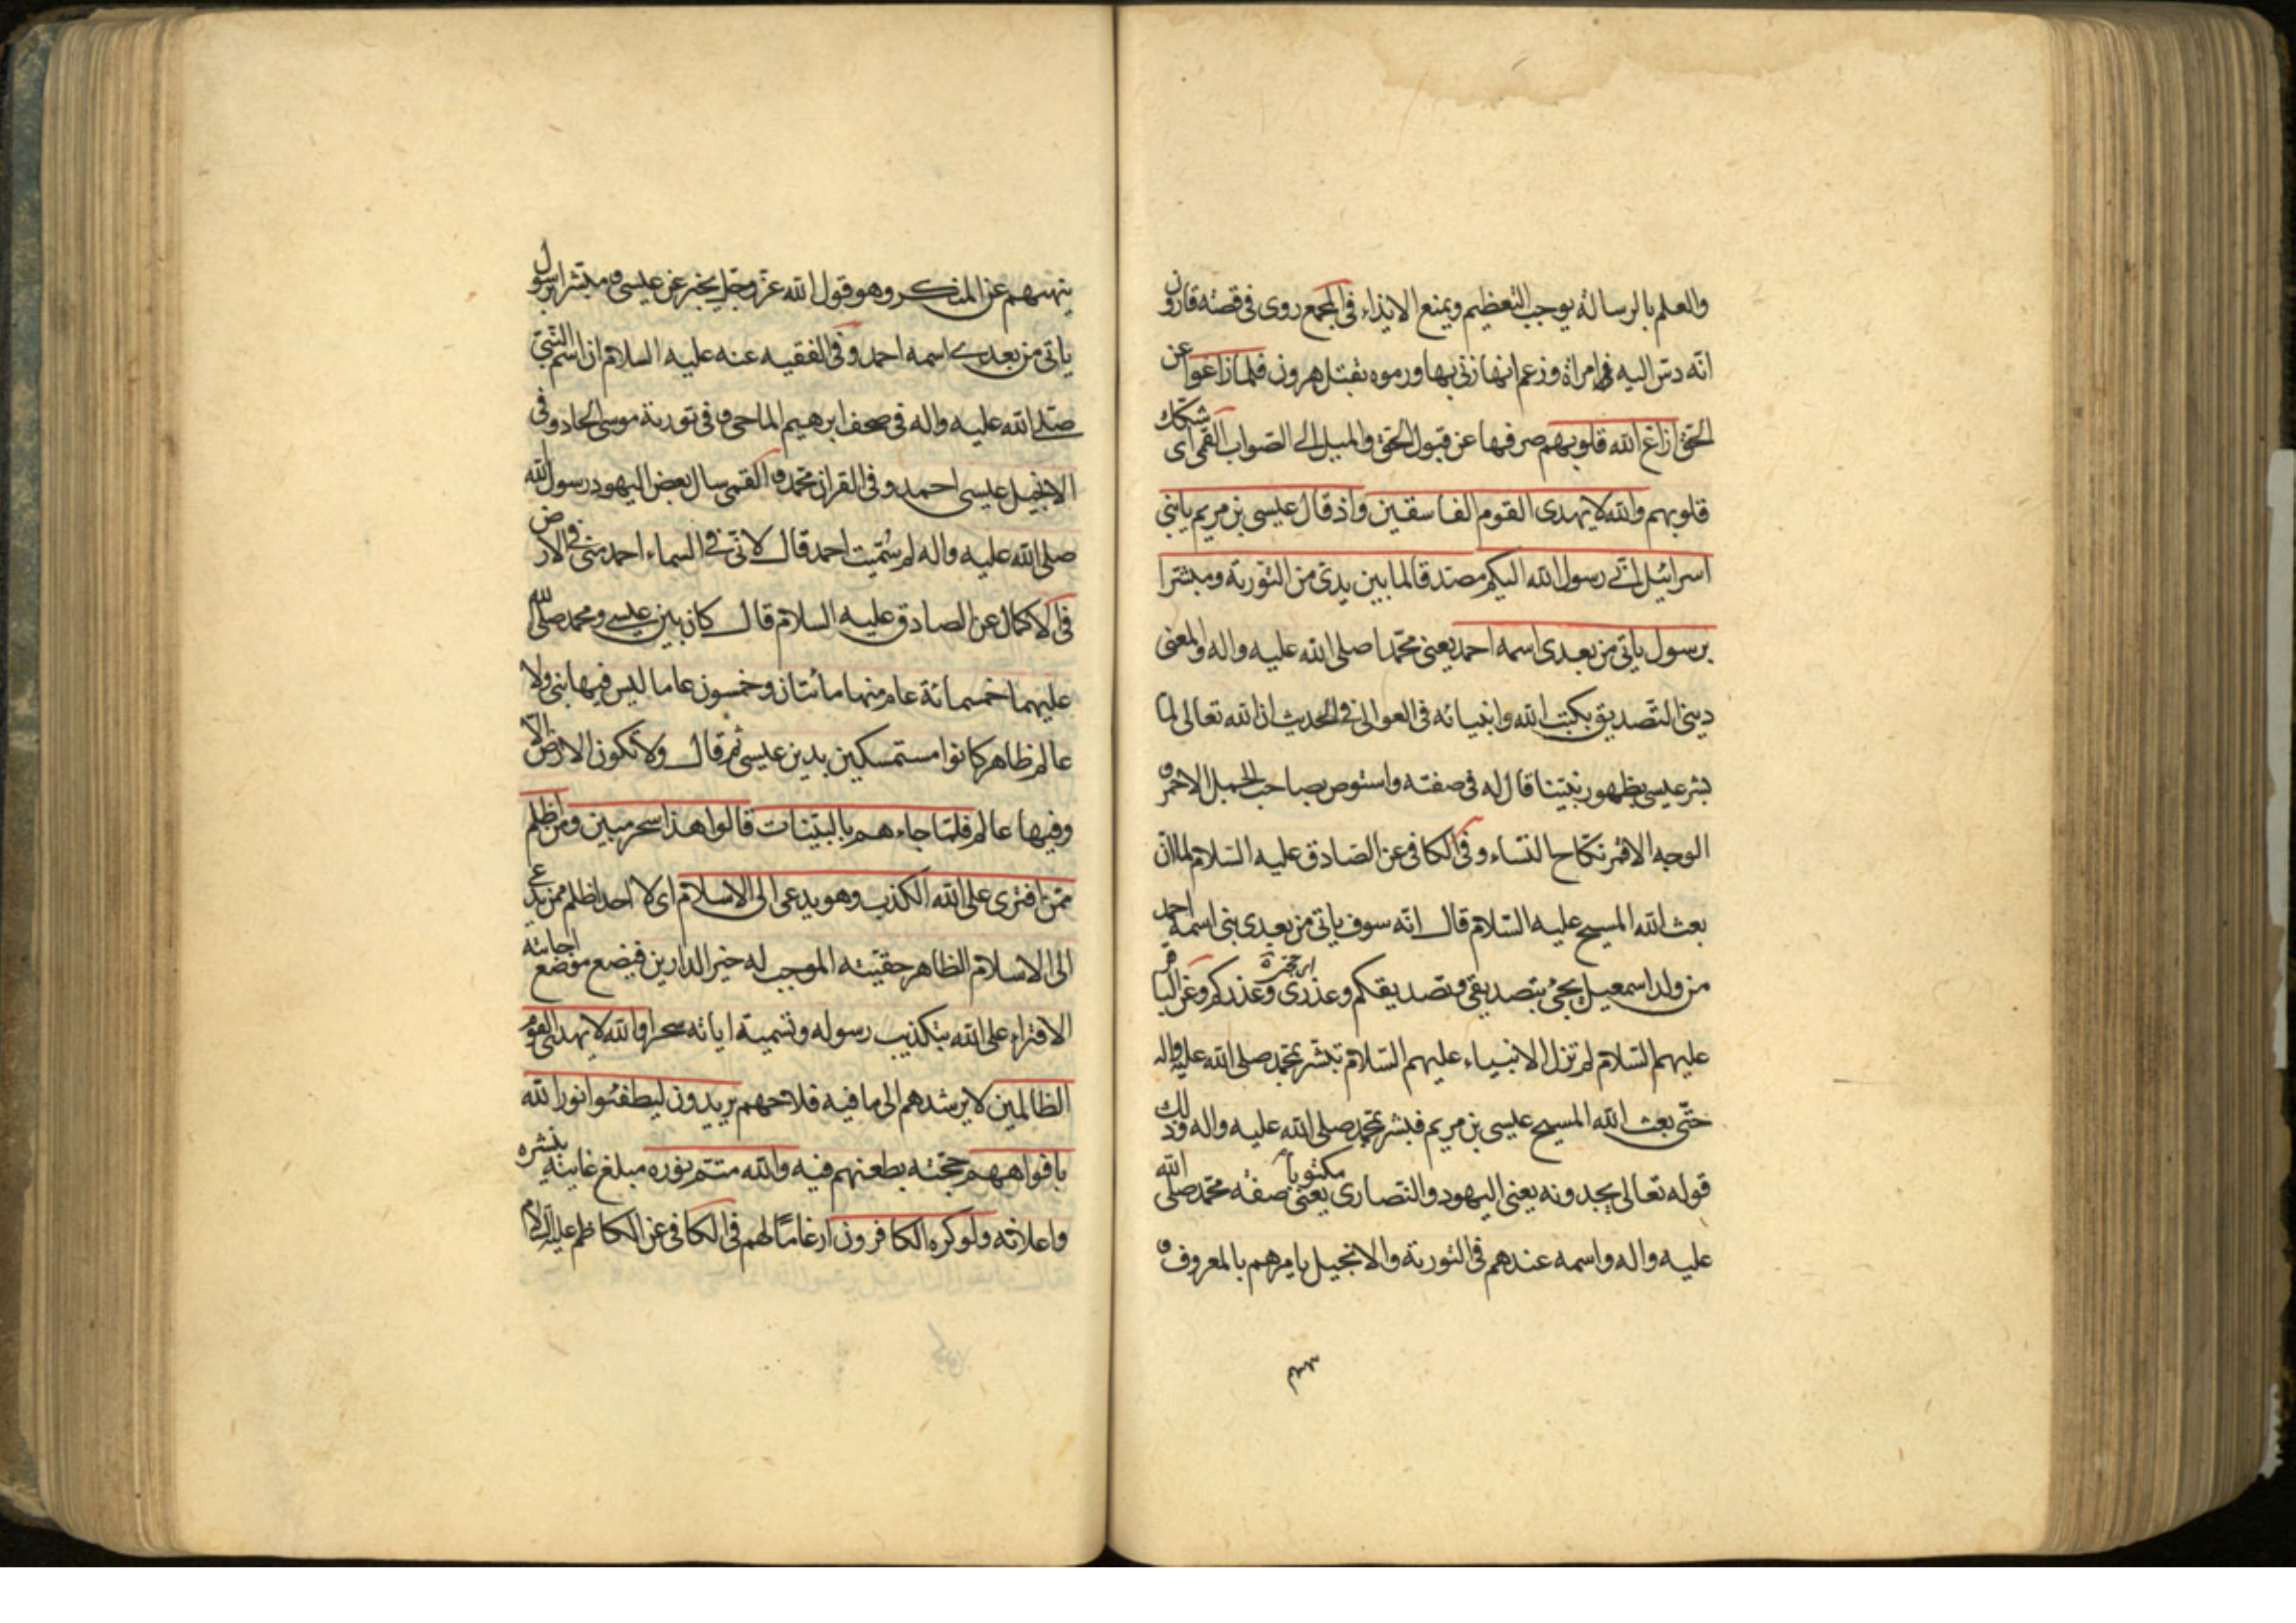 والعلم بالرسالة يوجب التعظيم ويمنع الايذاء في المجمع روى في قصة قارون
انه دس اليه امراة وزعم انها زنى بها ورموه بقتل هرون فلما زاغوا عن
الحق ازاغ الله قلوبهم صرفها عن قبول الحق والميل الى الصواب القمى اى شكك
قلوبهم والله لا يهدى القوم الفاسقين واذ قال عيسى بن مريم يا بنى
اسرائيل انى رسول الله اليكم مصدقا لما بين يدى من التورية ومبشرا
برسول ياتى من بعدى اسمه احمد يعنى محمدا صلى الله عليه واله والمعنى
دينى التصديق بكتب الله وانبيائه في العوالى في الحديث ان الله تعالى لما
بشر عيسى بظهور نبينا قال له في صفته واستوص بصاحب الجمل الاحمر و
الوجه الاقمر نكاح النساء وفي الكافى عن الصادق عليه السلام لما ان
بعث الله المسيح عليه السلام قال انه سوف ياتى من بعدى نبى اسمه احمد
من ولد اسمعيل يجئ بتصديقى وتصديقكم وعذرى وعذركم وعن الباقر
عليهم السلام لم تزل الانبياء عليهم السلام تبشر بمحمد صلى الله عليه واله
حتى بعث الله المسيح عيسى بن مريم فبشر بمحمد صلى الله عليه واله وذلك
قوله تعالى يجدونه يعنى اليهود والنصارى مكتوبا يعنى صفة محمد صلى الله
عليه واله واسمه عندهم في التورية والانجيل يامرهم بالمعروف و
ينهيهم عن المنكر وهو قول الله عز وجل يخبر عن عيسى ومبشرا برسول
ياتى من بعدى اسمه احمد وفي الفقيه عنه عليه السلام ان اسم النبى
صلى الله عليه واله في صحف ابرهيم الماحى وفي تورية موسى الحاد وفى
الانجيل عيسى احمد وفي القران محمد و القمى سال بعض اليهود رسول الله
صلى الله عليه واله لم سميت احمد قال لانى في السماء احمد منى في الارض
في الاكمال عن الصادق عليه السلام قال كان بين عيسى ومحمد صلى الله
عليهما خمسمائة عام منها مائتان وخمسون عاما ليس فيها نبى ولا
عالم ظاهر كانوا مستمسكين بدين عيسى ثم قال ولا تكون الارض الا
وفيها عالم فلما جاءهم بالبينات قالوا هذا سحر مبين ومن اظلم
ممن افترى على الله الكذب وهو يدعى الى الاسلام اى لا احد اظلم ممن يدعى
الى الاسلام الظاهر حقيته الموجب له خير الدارين فيضع موضع اجابته
الافتراء على الله بتكذيب رسوله وتسمية اياته سحرا والله لا يهدى القوم
الظالمين لا يرشدهم الى ما فيه فلاحهم يريدون ليطفئوا نور الله
بافواههم حجته بطعنهم فيه والله متم نوره مبلغ غايته بنشره
واعلائه ولو كره الكافرون ارغاما لهم في الكافى عن الكاظم عليه السلام